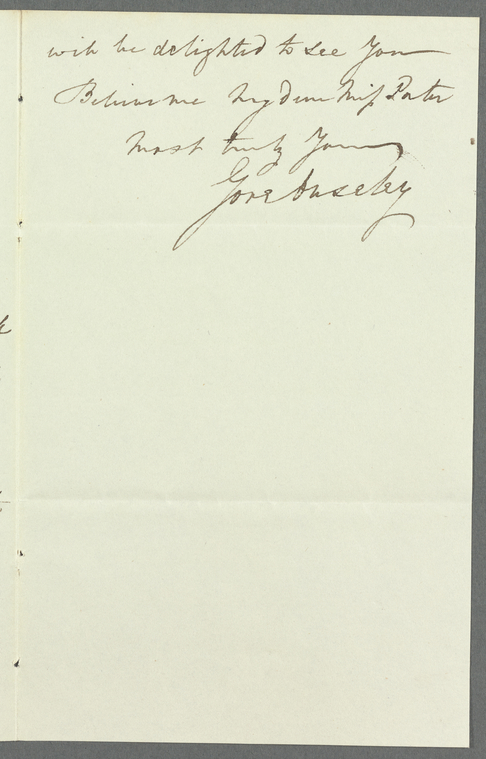 will be delighted to see You
Believe me My Dear Miss Porter
Most truly Yours
Gore Ouseley